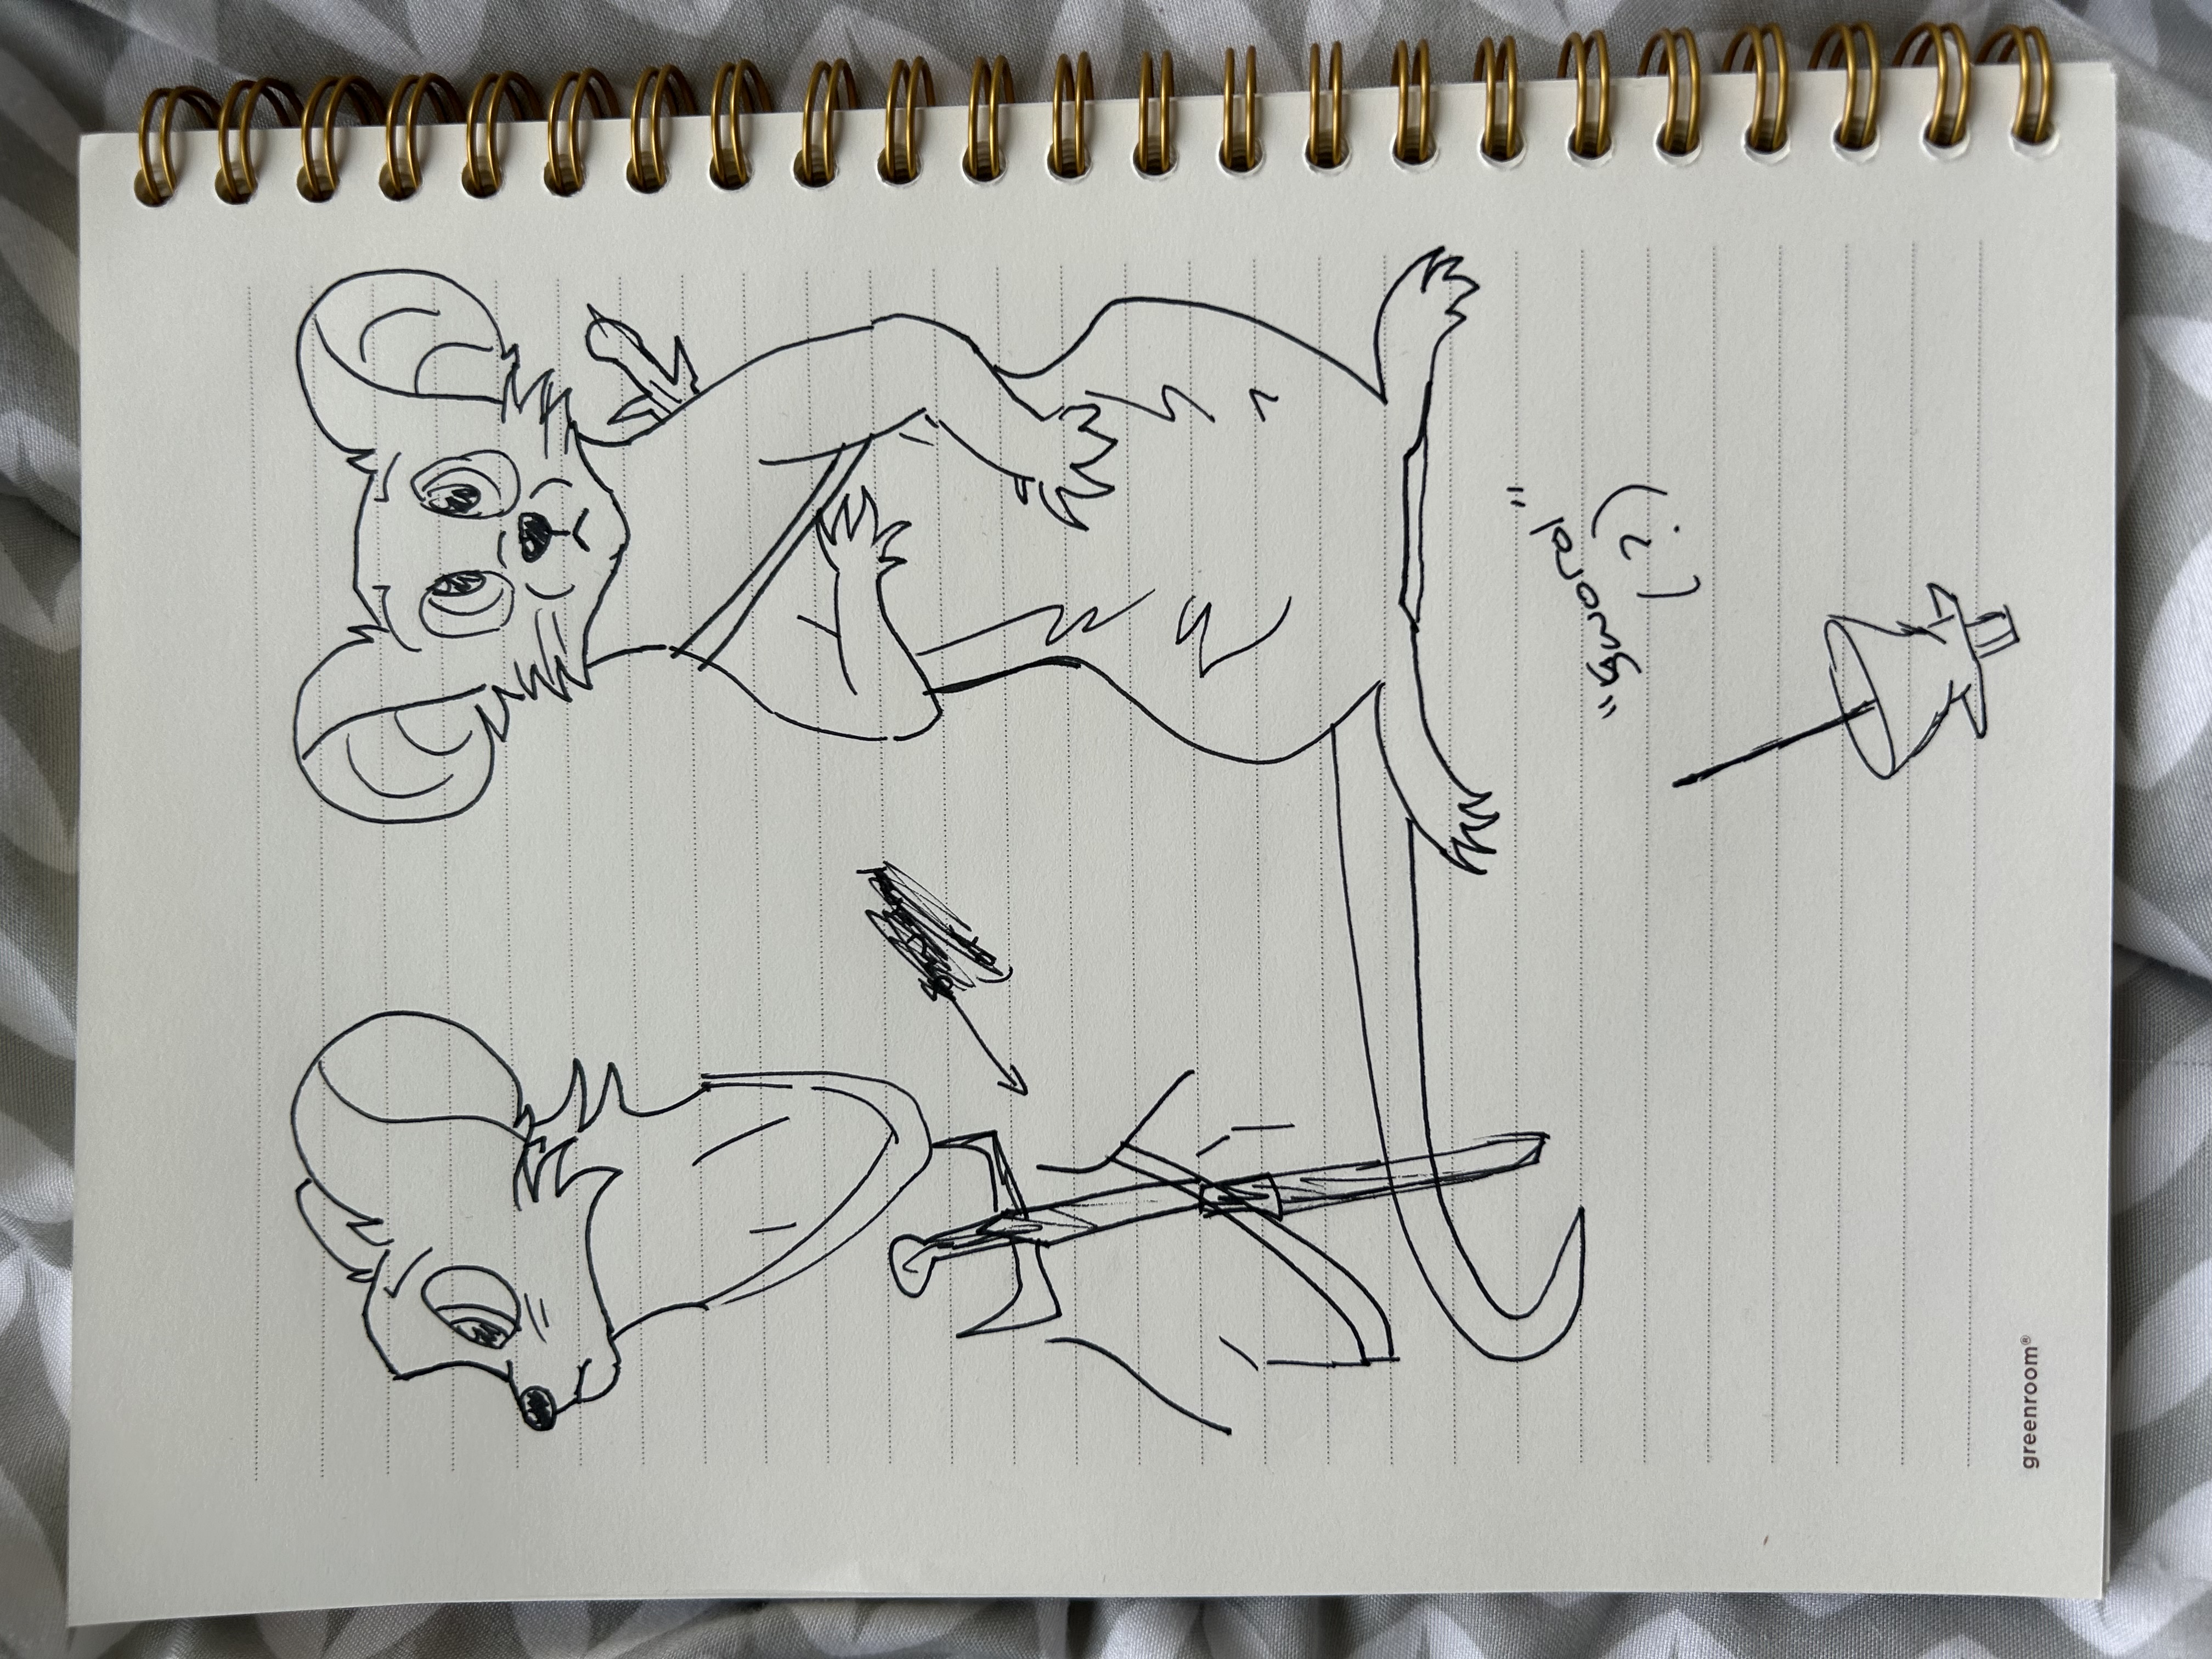 "Sword"
(?)
greenroom®